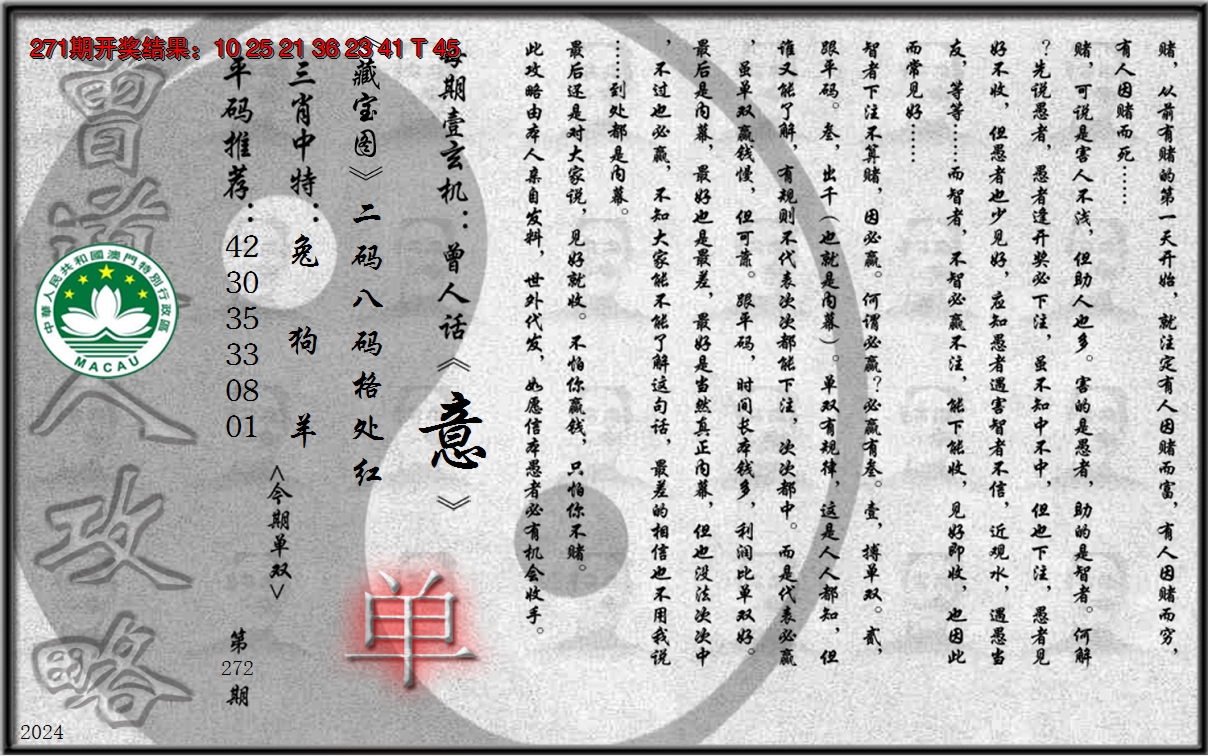 271期开奖结果：10 25 21 36 23 41 T 45
赌，从前有赌的第一天开始，就注定有人因赌而富，有人因赌而穷，
有人因赌而死……
赌，可说是害人不浅，但助人也多。害的是愚者，助的是智者。何解
？先说愚者，愚者逢开奖必下注，虽不知中不中，但也下注，愚者见
好不收，但愚者也少见好，应知愚者遇害智者不信，近观水，遇愚当
友，等等……而智者，不智必赢不注，能下能收，见好即收，也因此
而常见好……
智者下注不算赌，因必赢。何谓必赢？必赢有叁。壹，搏单双。贰，
跟平码。叁，出千（也就是内幕）。单双有规律，这是人人都知，但
谁又能了解，有规则不代表次次都能下注，次次都中。而是代表必赢
，虽单双赢钱慢，但可靠。跟平码，时间长本钱多，利润比单双好。
最后是内幕，最好也是最差，最好是当然真正内幕，但也没法次次中
，不过也必赢，不知大家能不能了解这句话，最差的相信也不用我说
……到处都是内幕。
最后还是对大家说，见好就收。不怕你赢钱，只怕你不赌。
此攻略由本人亲自发料，世外代发，如愿信本愚者必有机会收手。
每期壹玄机：曾人话《意》
《藏宝图》二码八码格处红
单
三肖中特：兔 狗 羊
<今期单双>
平码推荐：42 30 35 33 08 01
第272期
曾道人攻略
中華人民共和國澳門特別行政區
MACAU
2024